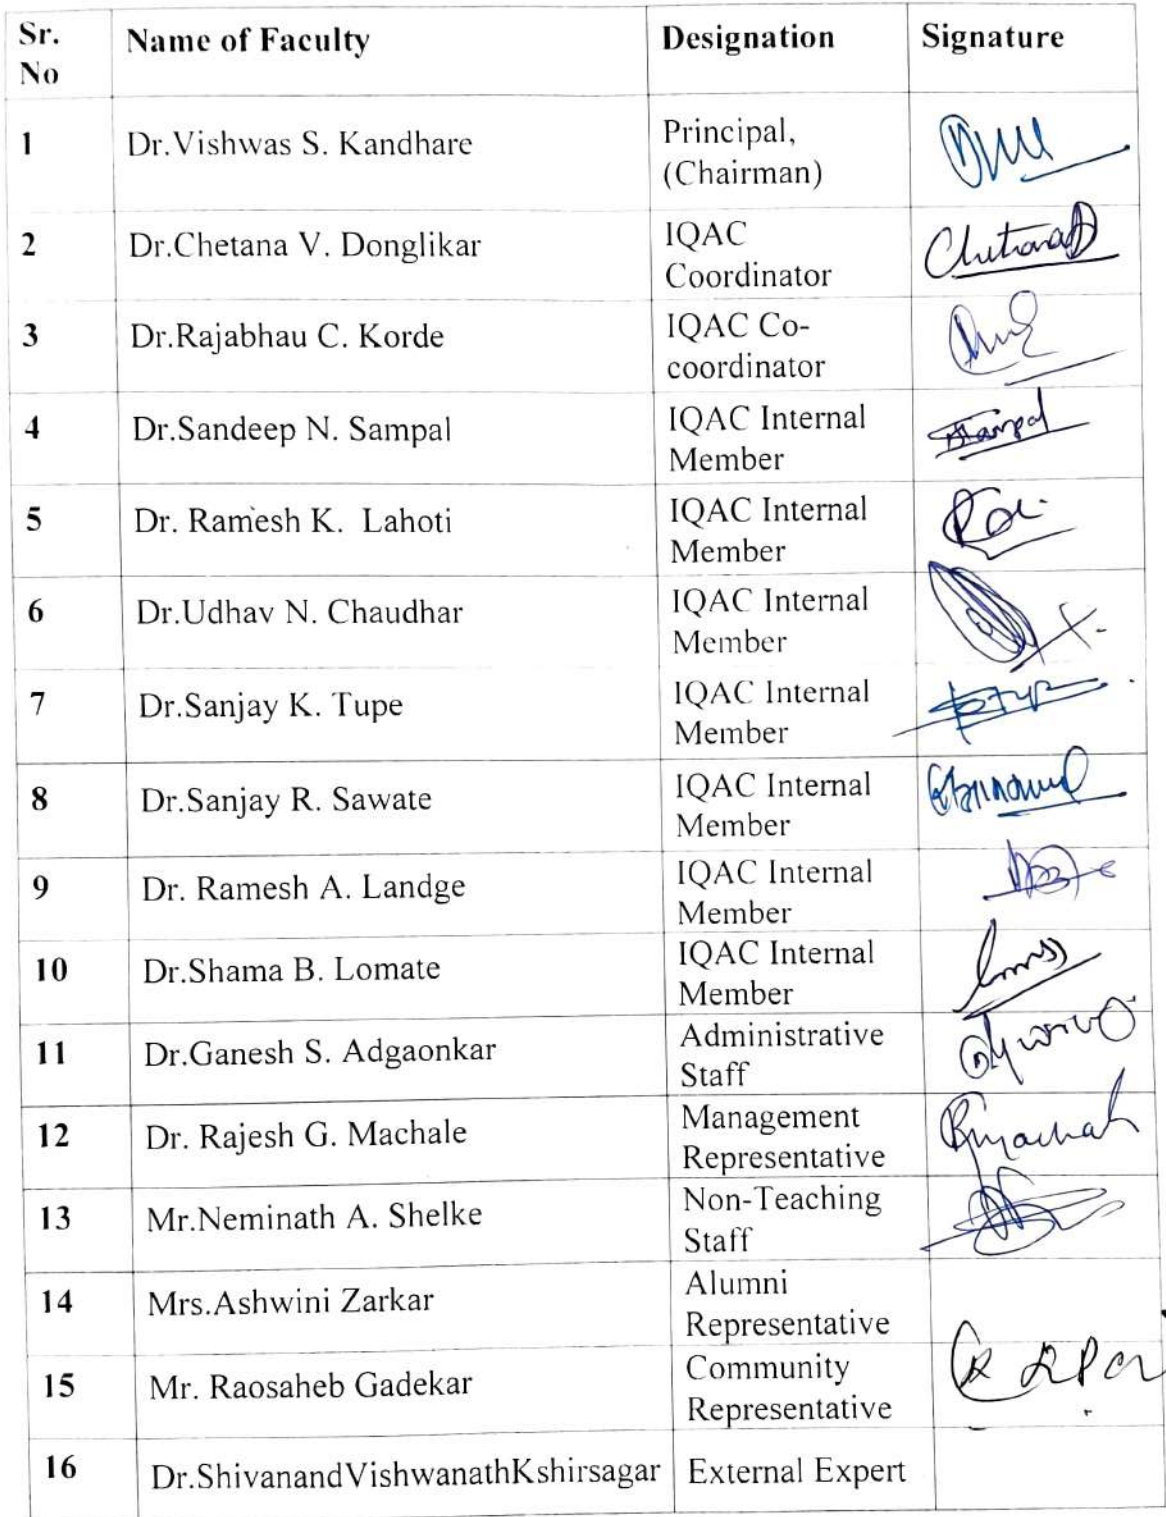 Sr. No Name of Faculty Designation Signature
1 Dr.Vishwas S. Kandhare Principal, (Chairman)
2 Dr.Chetana V. Donglikar IQAC Coordinator
3 Dr.Rajabhau C. Korde IQAC Co-coordinator
4 Dr.Sandeep N. Sampal IQAC Internal Member
5 Dr. Ramesh K. Lahoti IQAC Internal Member
6 Dr.Udhav N. Chaudhar IQAC Internal Member
7 Dr.Sanjay K. Tupe IQAC Internal Member
8 Dr.Sanjay R. Sawate IQAC Internal Member
9 Dr. Ramesh A. Landge IQAC Internal Member
10 Dr.Shama B. Lomate IQAC Internal Member
11 Dr.Ganesh S. Adgaonkar Administrative Staff
12 Dr. Rajesh G. Machale Management Representative
13 Mr.Neminath A. Shelke Non-Teaching Staff
14 Mrs.Ashwini Zarkar Alumni Representative
15 Mr. Raosaheb Gadekar Community Representative
16 Dr.ShivanandVishwanathKshirsagar External Expert